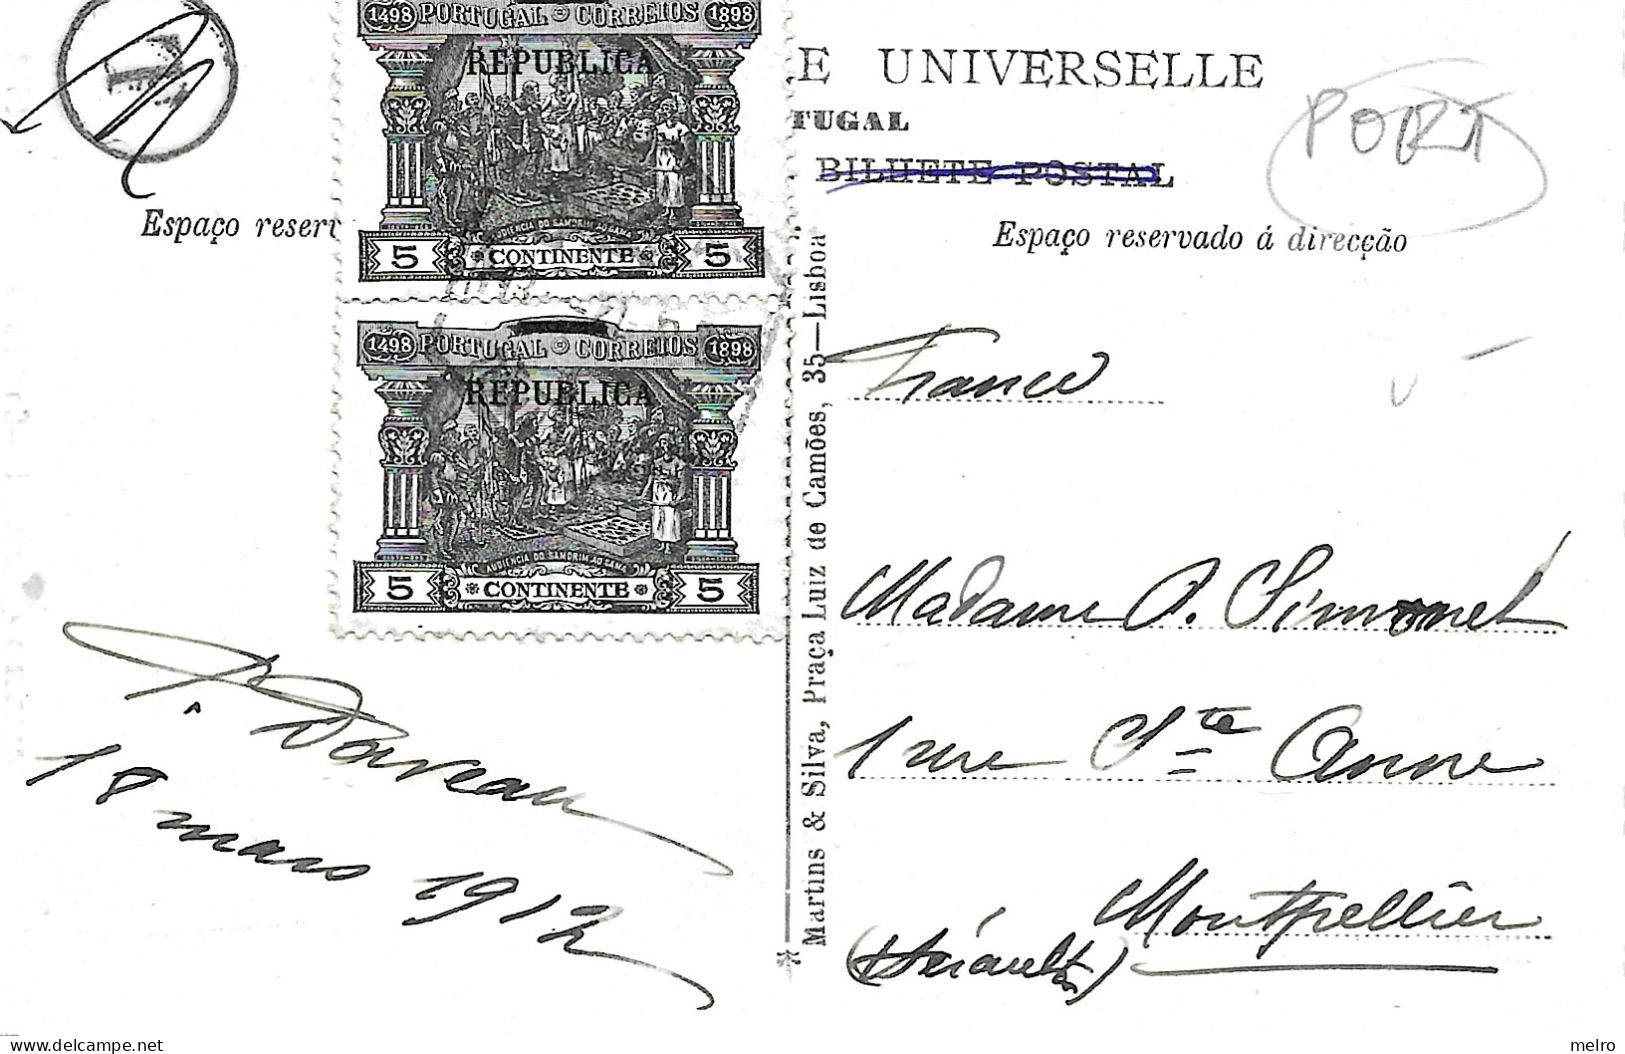 1498 PORTUGAL CORREIOS 1898
REPUBLICA
AUDIENCIA DO SAMORIM AO GAMA
5 CONTINENTE 5
1498 PORTUGAL CORREIOS 1898
REPUBLICA
AUDIENCIA DO SAMORIM AO GAMA
5 CONTINENTE 5
T
E UNIVERSELLE
TUGAL
BILHETE POSTAL
PORT
Espaço reserv
Espaço reservado á direcção
Martins & Silva, Praça Luiz de Camões, 35—Lisboa
France
Madame S. Simonet
1 rue Ste Anne
Montpellier
(Hérault)
J. Daveau
18 mars 1912
delcampe.net
melro